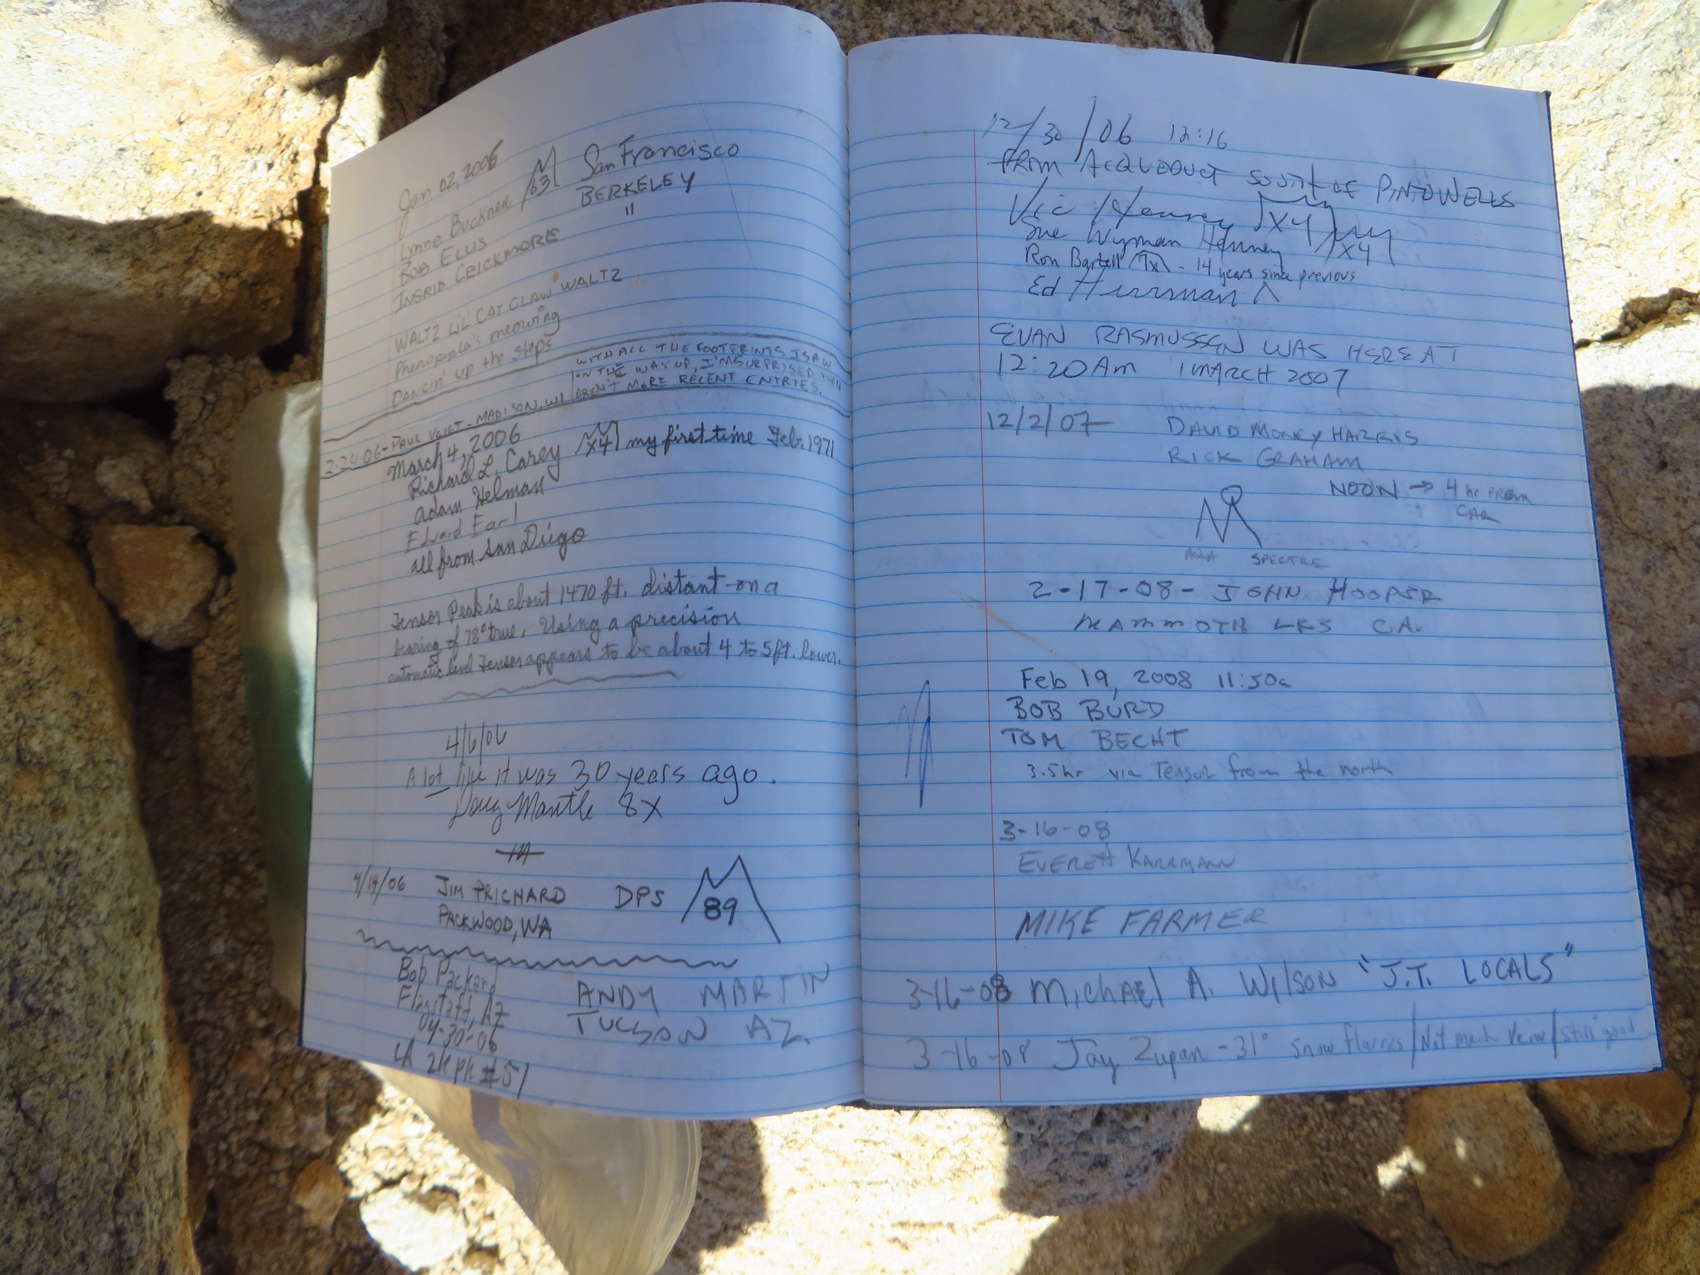 Jan 02, 2006
Lynne Buckner 63 San Francisco
BOB ELLIS BERKELEY
INGRID CRICKMORE "
WALTZ LIL' CAT CLAW WALTZ
meowing
Dancin' up the steps
WITH ALL THE FOOTPRINTS I SAW
ON THE WAY UP, I'M SURPRISED THERE
AREN'T MORE RECENT ENTRIES.
2-24-06 - PAUL - MADISON, WI
March 4, 2006
Richard L. Carey X4 my first time Feb. 1971
Adam Helman
Edward Earl
all from San Diego
Tensor Peak is about 1470 ft. distant on a
bearing of 78° true. Using a precision
automatic level Tensor appears to be about 4 to 5 ft. lower.
4/6/06
A lot like it was 30 years ago.
Doug Mantle 8X
4/19/06 JIM PRICHARD DPS 89
PACKWOOD, WA
Bob Packard
Flagstaff, AZ
04-30-06
CA 2K pk #51
ANDY MARTIN
TUCSON AZ.
12/30/06 12:16
FROM ACQUEDUCT SOUTH OF PINTO WELLS
Vic Henney X4
Sue Wyman Henney X4
Ron Bartell 7x - 14 years since previous
Ed Herrman
EVAN RASMUSSEN WAS HERE AT
12:20 Am 1 MARCH 2007
12/2/07 DAVID MONKY HARRIS
RICK GRAHAM
NOON → 4 hr FROM
CAR
SPECTRE
2-17-08- JOHN HOOPER
MAMMOTH LKS CA.
Feb 19, 2008 11:50a
BOB BURD
TOM BECHT
3.5hr via Tensor from the north
3-16-08
EVERETT KARRMANN
MIKE FARMER
3-16-08 MICHAEL A. WILSON "J.T. LOCALS"
3-16-08 Jay Zupan - 31° snow flurries / Not much View / still good